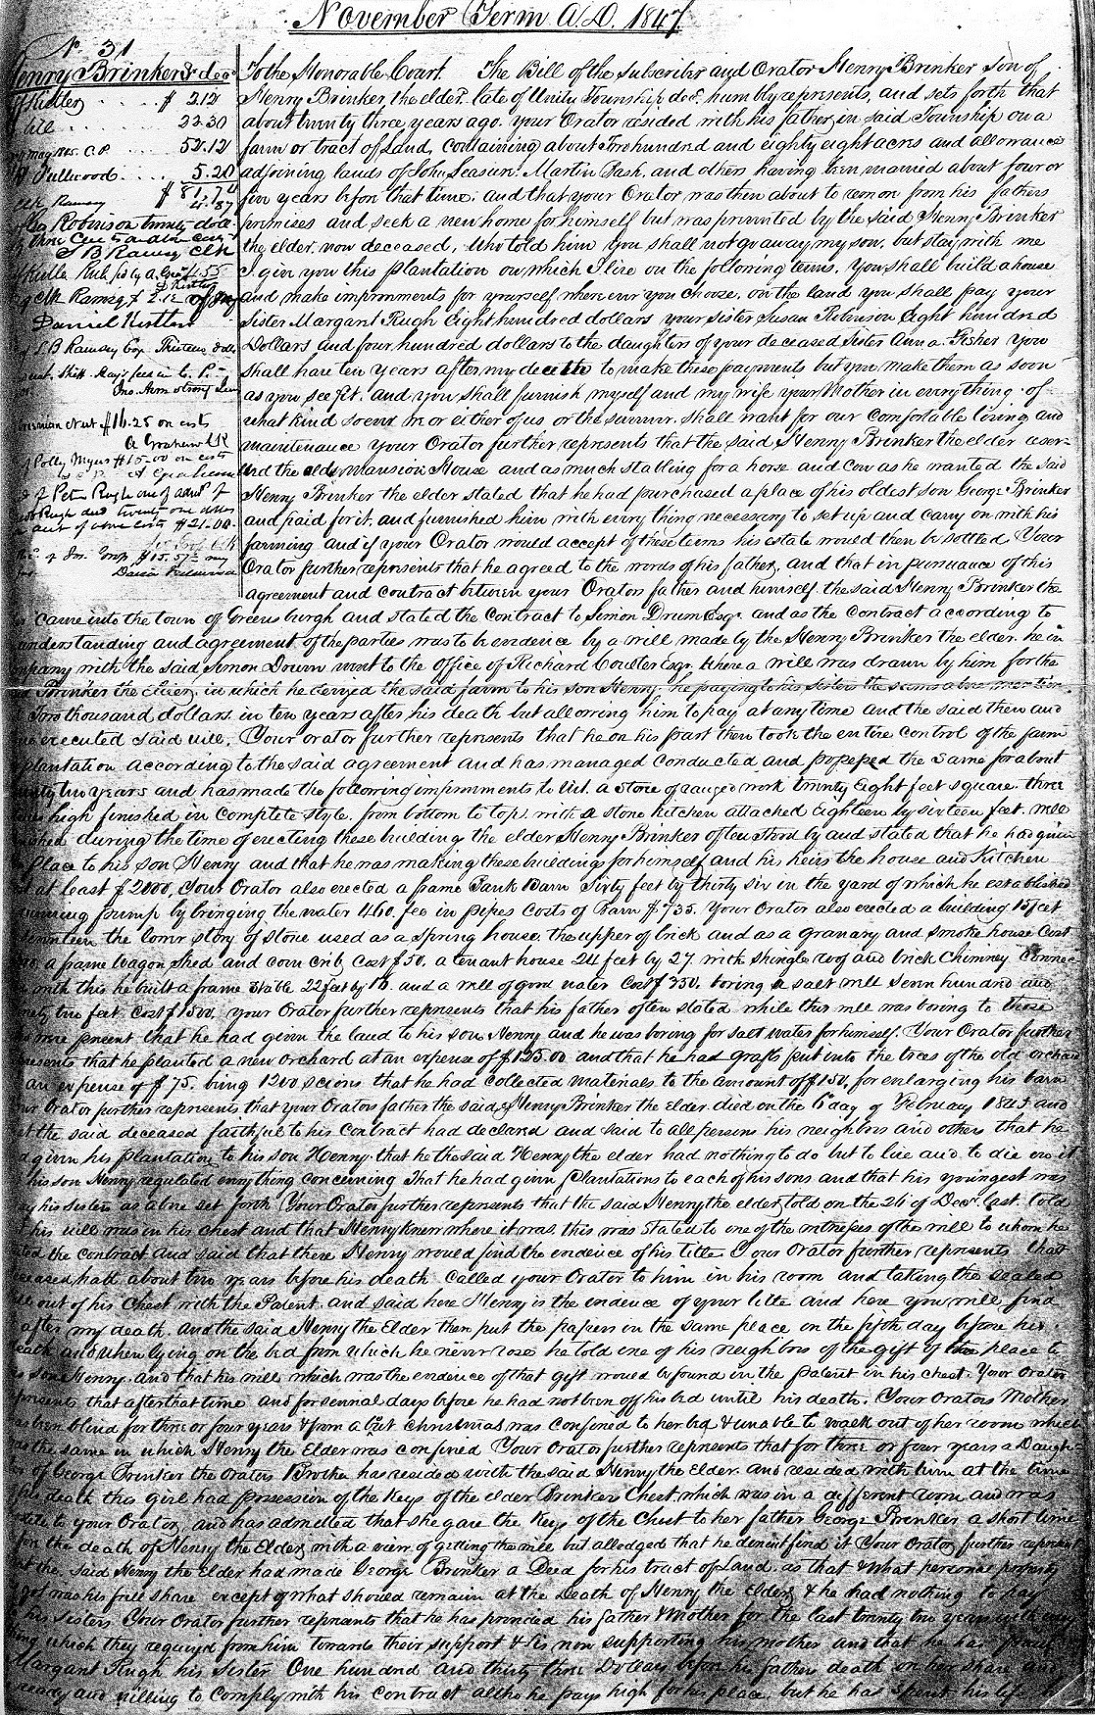 November Term A.D. 1847
No. 31
Henry Brinker's dec
$ 2.12
bill 22.30
C.P. 52.12
Fullwood 5.20
$ 81.74
Clk Ramsey 4.87
Robinson twenty
B Ramsey Clk
Rec
Clk Ramsey $ 2.12
Daniel
B Ramsey
Jno. Armstrong
$16.25 on costs
A Graham Clk
Polly Myers $15.00 on costs
of Peter Rugh one of
Rugh decd twenty one dollars
out of costs $21.00
of Jos. $15.57
David
To the Honorable Court. The Bill of the Subscriber and Orator Henry Brinker son of
Henry Brinker, the elder, late of Unity Township dec. humbly represents, and sets forth that
about twenty three years ago your Orator resided with his father in said Township on a
farm or tract of Land, containing about Two hundred and eighty eight acres and allowance
adjoining lands of John Martin and others having been married about four or
five years before that time, and that your Orator was then about to remove from his fathers
premises and seek a new home for himself but was prevented by the said Henry Brinker
the elder, now deceased, who told him you shall not go away my son, but stay with me
I give you this plantation on which I live on the following terms. You shall build a house
and make improvements for yourself where ever you choose, on the land you shall pay your
Sister Margaret Rugh Eight hundred dollars your Sister Susan Robinson Eight hundred
Dollars and four hundred dollars to the daughters of your deceased Sister Anna Fisher you
shall have ten years after my decease to make these payments but you make them as soon
as you see fit, and you shall furnish myself and my wife your Mother in everything of
what kind soever, we or either of us or the survivor, shall want for our comfortable living and
maintenance your Orator further represents that the said Henry Brinker the elder reser-
ved the old Mansion House and as much stabling for a horse and cow as he wanted the said
Henry Brinker the elder stated that he had purchased a place of his oldest son George Brinker
and paid for it, and furnished him with every thing necessary to set up and carry on with his
farming and if your Orator would accept of these terms his estate would then be settled Your
Orator further represents that he agreed to the words of his father, and that in pursuance of this
agreement and contract between your Orators father and himself the said Henry Brinker the
came into the town of Greensburgh and stated the Contract to Simon Drum Esq. and as the Contract according to
understanding and agreement of the parties was to be evidence by a will made by the Henry Brinker the elder he in
company with the said Simon Drum went to the office of Richard Coulter Esqr. where a will was drawn by him for the
Brinker the Elder, in which he devised the said farm to his son Henry he paying to his sisters the sums above mention
Two thousand dollars in ten years after his death but allowing him to pay at any time and the said then and
executed said will. Your orator further represents that he on his part then took the entire control of the farm
plantation according to the said agreement and has managed conducted and possessed the same for about
twenty two years and has made the following improvements to wit. a stone of ranged work twenty Eight feet square three
high finished in complete style, from bottom to top, with a stone kitchen attached Eighteen by sixteen feet, well
during the time of erecting these building the elder Henry Brinker often stood by and stated that he had given
Place to his son Henry and that he was making these buildings for himself and his heirs the house and Kitchen
at least $2000, Your Orator also erected a frame Bank Barn Sixty feet by thirty six in the yard of which he established
pump by bringing the water 460 fee in pipes Costs of Barn $735. Your Orator also erected a building 15 feet
seventeen the lower story of stone used as a Spring house, the upper of brick and as a granary and smoke house Cost
a frame Wagon Shed and corn crib, Cost $50, a tenant house 24 feet by 27 with shingle roof and brick Chimney Connec
with this he built a frame stable 22 feet by 16 and a well of good water Cost $350. boring a salt well seven hundred and
ninety two feet. Cost $1500. your Orator further represents that his father often stated while this well was boring to those
were present that he had given the land to his son Henry and he was boring for salt water for himself. Your Orator further
represents that he planted a new orchard at an expense of $125.00 and that he has grafts put into the trees of the old orchard
an expense of $75. being 1200 scions, that he had collected materials to the amount of $150, for enlarging his barn
your Orator further represents that your Orators father the said Henry Brinker the Elder died on the 6 day of February 1845 and
the said deceased faithful to his contract had declared and said to all persons his neighbors and others that he
given his plantation to his son Henry that he the said Henry the elder had nothing to do but to live and to die on it
his son Henry regulated everything concerning That he had given Plantations to each of his sons and that his youngest was
pay his sisters as above set forth Your Orator further represents that the said Henry the elder told on the 26 of Decr. last, told
his will was in his chest and that Henry knew where it was, this was stated to one of the witnesses of the will to whom he
the contract and said that there Henry would find the evidence of his title Your Orator further represents that
deceased had about two years before his death called your Orator to him in his room and taking the sealed
out of his Chest with the Patent, and said here Henry is the evidence of your title and here you will find
after my death. And the said Henry the Elder then put the papers in the same place on the fifth day before his
death and when lying on the bed from which he never rose he told one of his neighbors of the gift of the place to
son Henry and that his will which was the evidence of that gift would be found in the patent in his chest. Your Orator
represents that after that time and for several days before he had not been off his bed until his death. Your Orators Mother
has been blind for three or four years & from a last Christmas was confined to her bed & unable to walk out of her room which
was the same in which Henry the Elder was confined Your Orator further represents that for three or four years a Daugh-
ter of George Brinker the Orators Brother has resided with the said Henry the Elder and resided with him at the time
his death this girl had possession of the Keys of the elder Brinkers Chest which was in a different room and was
to your Orator, and has admitted that she gave the Keys of the Chest to her father George Brinker a short time
before the death of Henry the Elder, with a view of getting the will but alledged that he didnt find it Your Orator further represent
that the said Henry the Elder had made George Brinker a Deed for his tract of Land as that & What personal property
got was his full share except of what should remain at the Death of Henry the Elder, & he had nothing to pay
his Sisters Your Orator further represents that he has provided his father & Mother for the last twenty two years with
which they required from him towards their support & is now supporting his mother and that he has paid
Margaret Rugh his Sister One hundred and thirty three Dollars before his fathers death on her share and
ready and willing to comply with his contract altho he pays high for his place, but he has spent his life